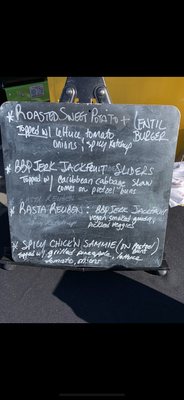 * ROASTED SWEET POTATO + LENTIL BURGER
topped w/ lettuce, tomato
onions, spicy ketchup
* BBQ JERK JACKFRUIT SLIDERS
topped w/ Caribbean cabbage slaw
comes on pretzel buns
* RASTA REUBEN: BBQ JERK JACKFRUIT
vegan smoked gouda,
pickled veggies
* SPICY CHICK'N SAMMIE (ON pretzel buns
topped w/ grilled pineapple, lettuce
tomato, onions